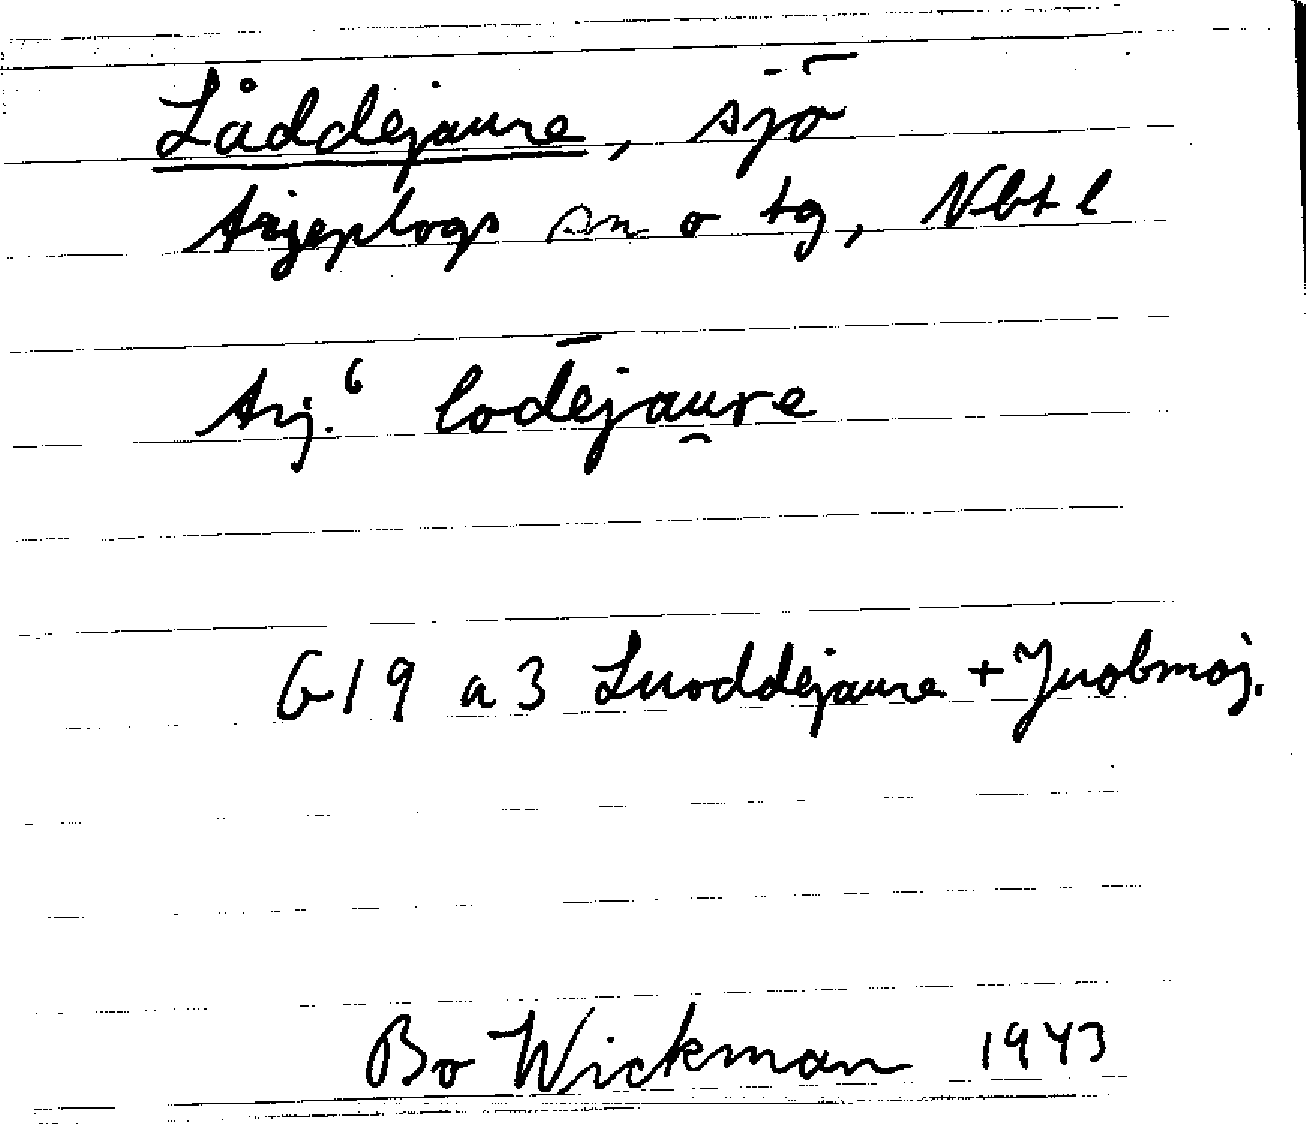 Låddejaure, sjö
Arjeplogs sn o tg, Nbt l
Arj.⁶ lod̄ejau̯re
G19 a3 Luoddejaure + Juobmoj.
Bo Wickman 1943